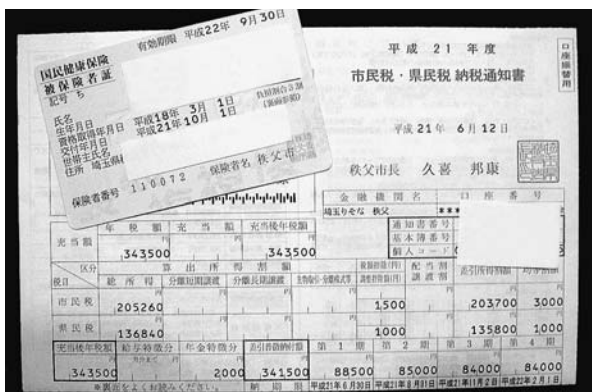 国民健康保険
被保険者証
有効期限 平成22年 9月30日
記号 ち
氏名
生年月日
資格取得年月日 平成18年 3月 1日
交付年月日 平成21年10月 1日
世帯主氏名
住所 埼玉県
負担割合3割
保険者番号 110072 保険者名 秩父市
平成 21 年度
市民税・県民税 納税通知書
口座振替用
平成21年 6月12日
秩父市長 久喜 邦康
金融機関名 口座番号
埼玉りそな 秩父
通知書番号
基本簿番号
個人コード
年税額 充当額 充当後年税額
充当額 343500 343500
区分 算出所得割額
税目 総所得 分離短期譲渡 分離長期譲渡 配当割 譲渡割 差引所得割額 均等割額
市民税 205260 1500 203700 3000
県民税 136840 1000 135800 1000
充当後年税額 給与特徴分 年金特徴分 差引普徴納付額 第1期 第2期 第3期 第4期
343500 2000 341500 88500 85000 84000 84000
※裏面をよくお読みください。 納期限 平成21年6月30日 平成21年8月31日 平成21年11月2日 平成22年2月1日